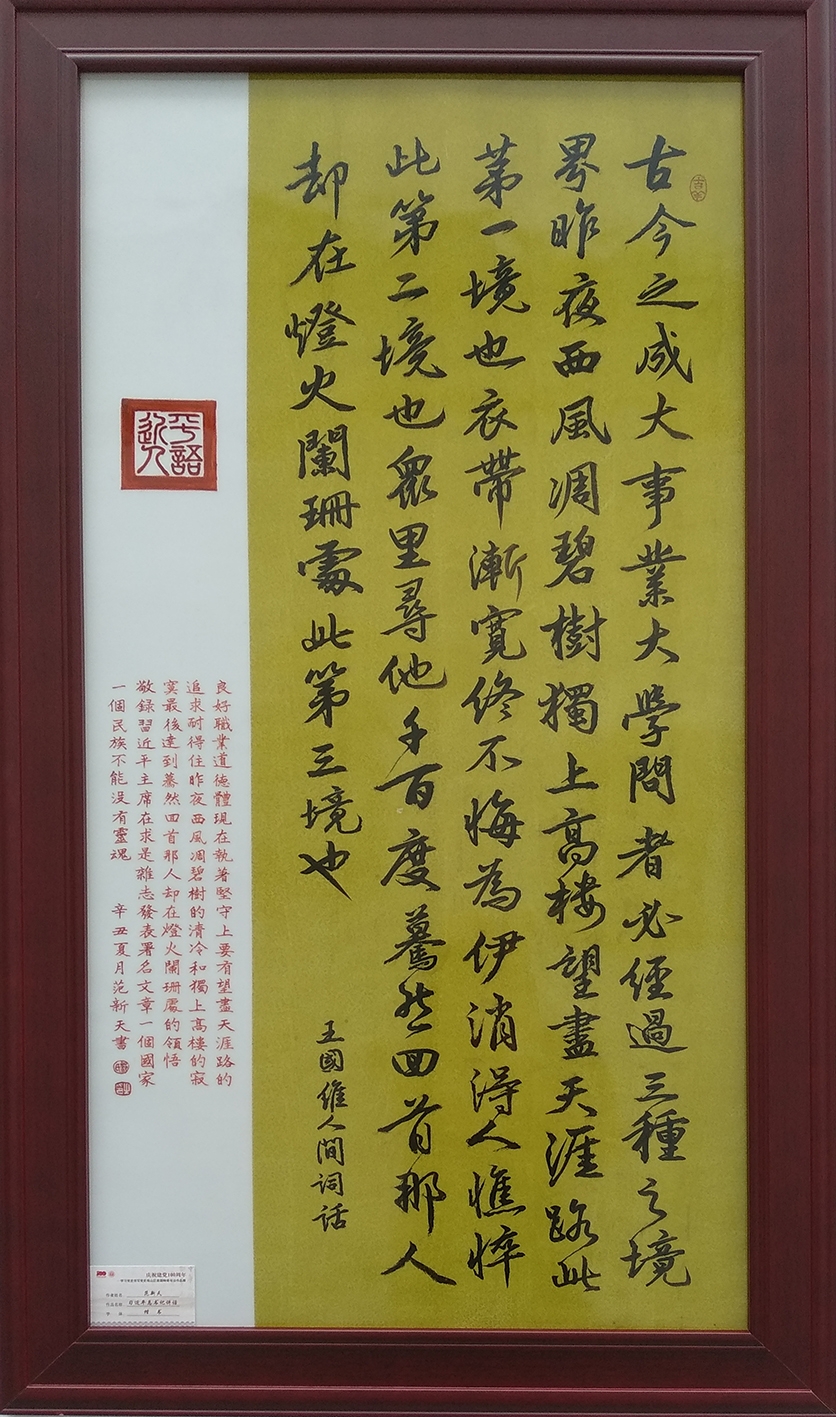 古今之成大事業大學問者必經過三種之境
界昨夜西風凋碧樹獨上高樓望盡天涯路此
第一境也衣帶漸寬終不悔為伊消得人憔悴
此第二境也眾里尋他千百度驀然回首那人
却在燈火闌珊處此第三境也
王國維人間词話
平語近人
良好職業道德體現在執著堅守上要有望盡天涯路的
追求耐得住昨夜西風凋碧樹的清冷和獨上高樓的寂
寞最後達到驀然回首那人却在燈火闌珊處的領悟
敬錄習近平主席在求是雜志發表署名文章一個國家
一個民族不能没有靈魂 辛丑夏月范新天書
庆祝建党100周年
作者姓名
作品名称